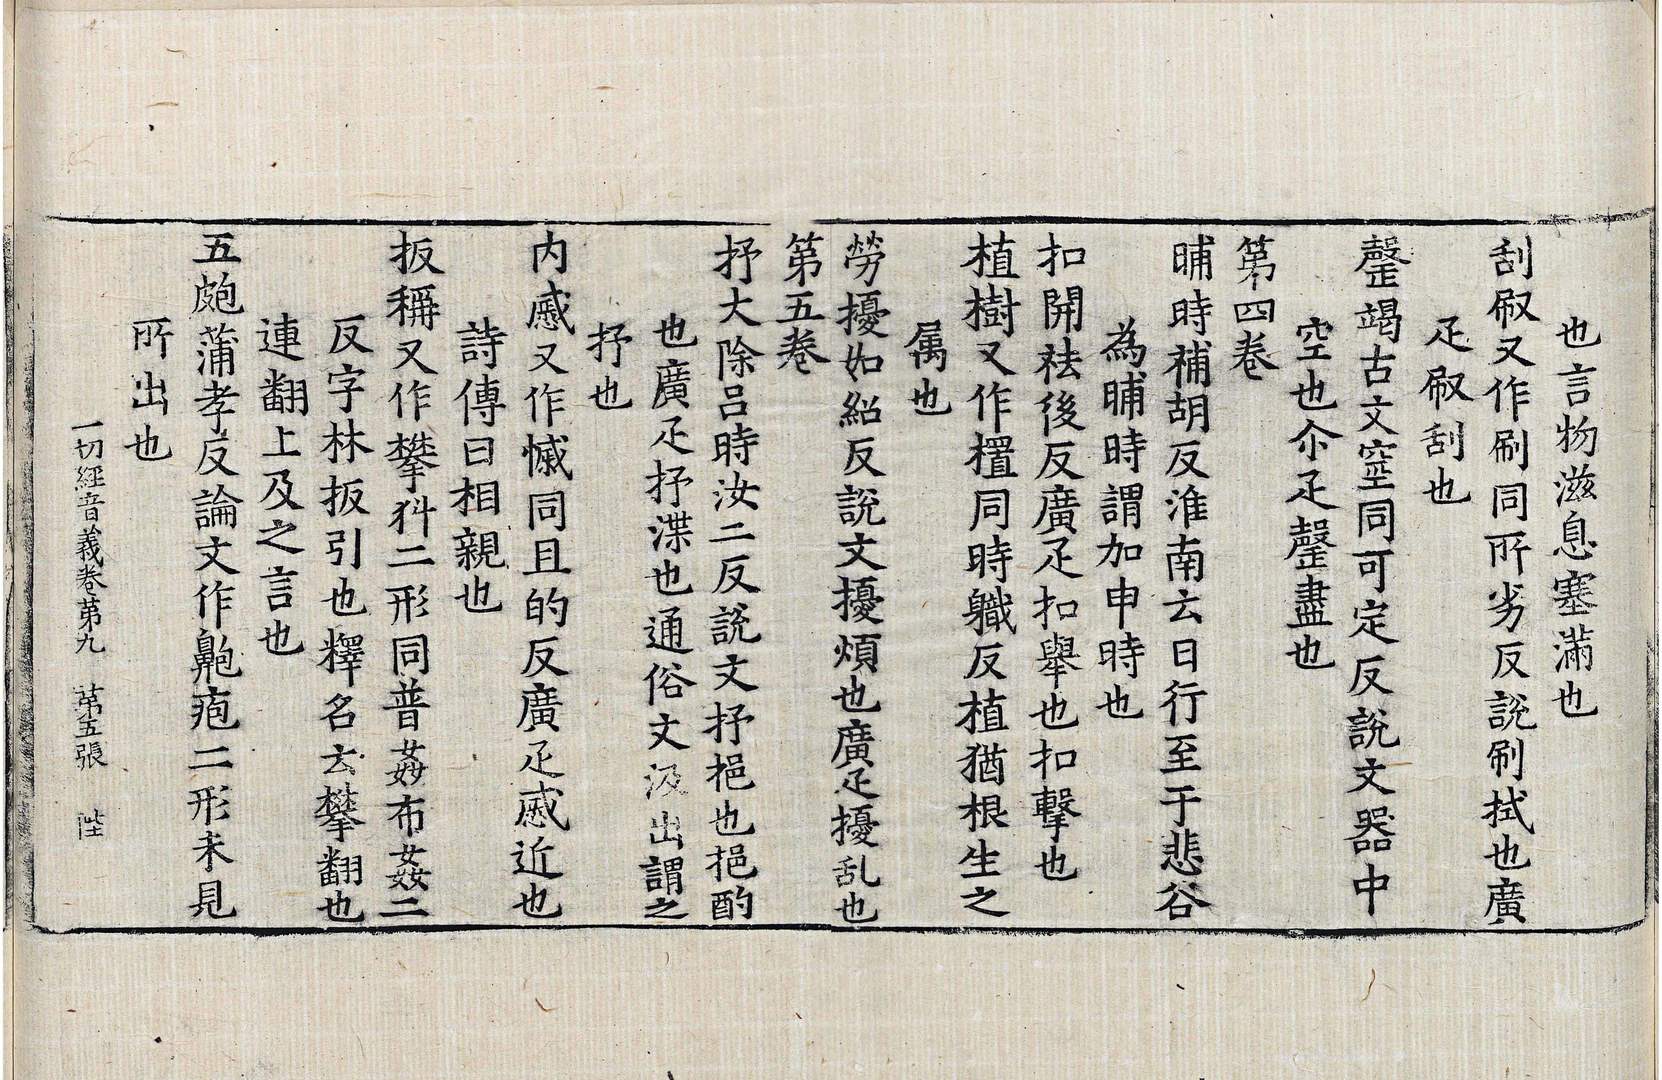 也言物滋息塞滿也
刮㕞又作刷同所劣反說刷拭也廣
疋㕞刮也
罄竭古文窒同可定反說文器中
空也尒疋罄盡也
第四卷
晡時補胡反淮南云日行至于悲谷
為晡時謂加申時也
扣開袪後反廣疋扣舉也扣擊也
植樹又作㯰同時軄反植猶根生之
属也
勞擾如紹反說文擾煩也廣疋擾乱也
第五卷
抒大除呂時汝二反說文抒挹也挹酌
也廣疋抒渫也通俗文汲出謂之
抒也
内慼又作慽同且的反廣疋慼近也
詩傳曰相親也
扳稱又作攀𢪙二形同普姦布姦二
反字林扳引也釋名云攀翻也
連翻上及之言也
五皰蒲孝反論文作䶌疱二形未見
所出也
一切經音義卷第九 第五張 陛